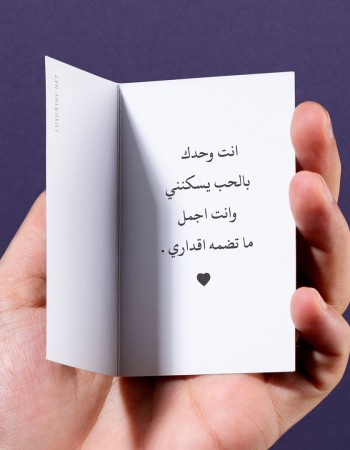 LUXURYAY.NET
انت وحدك
بالحب يسكنني
وانت اجمل
ما تضمه اقداري .